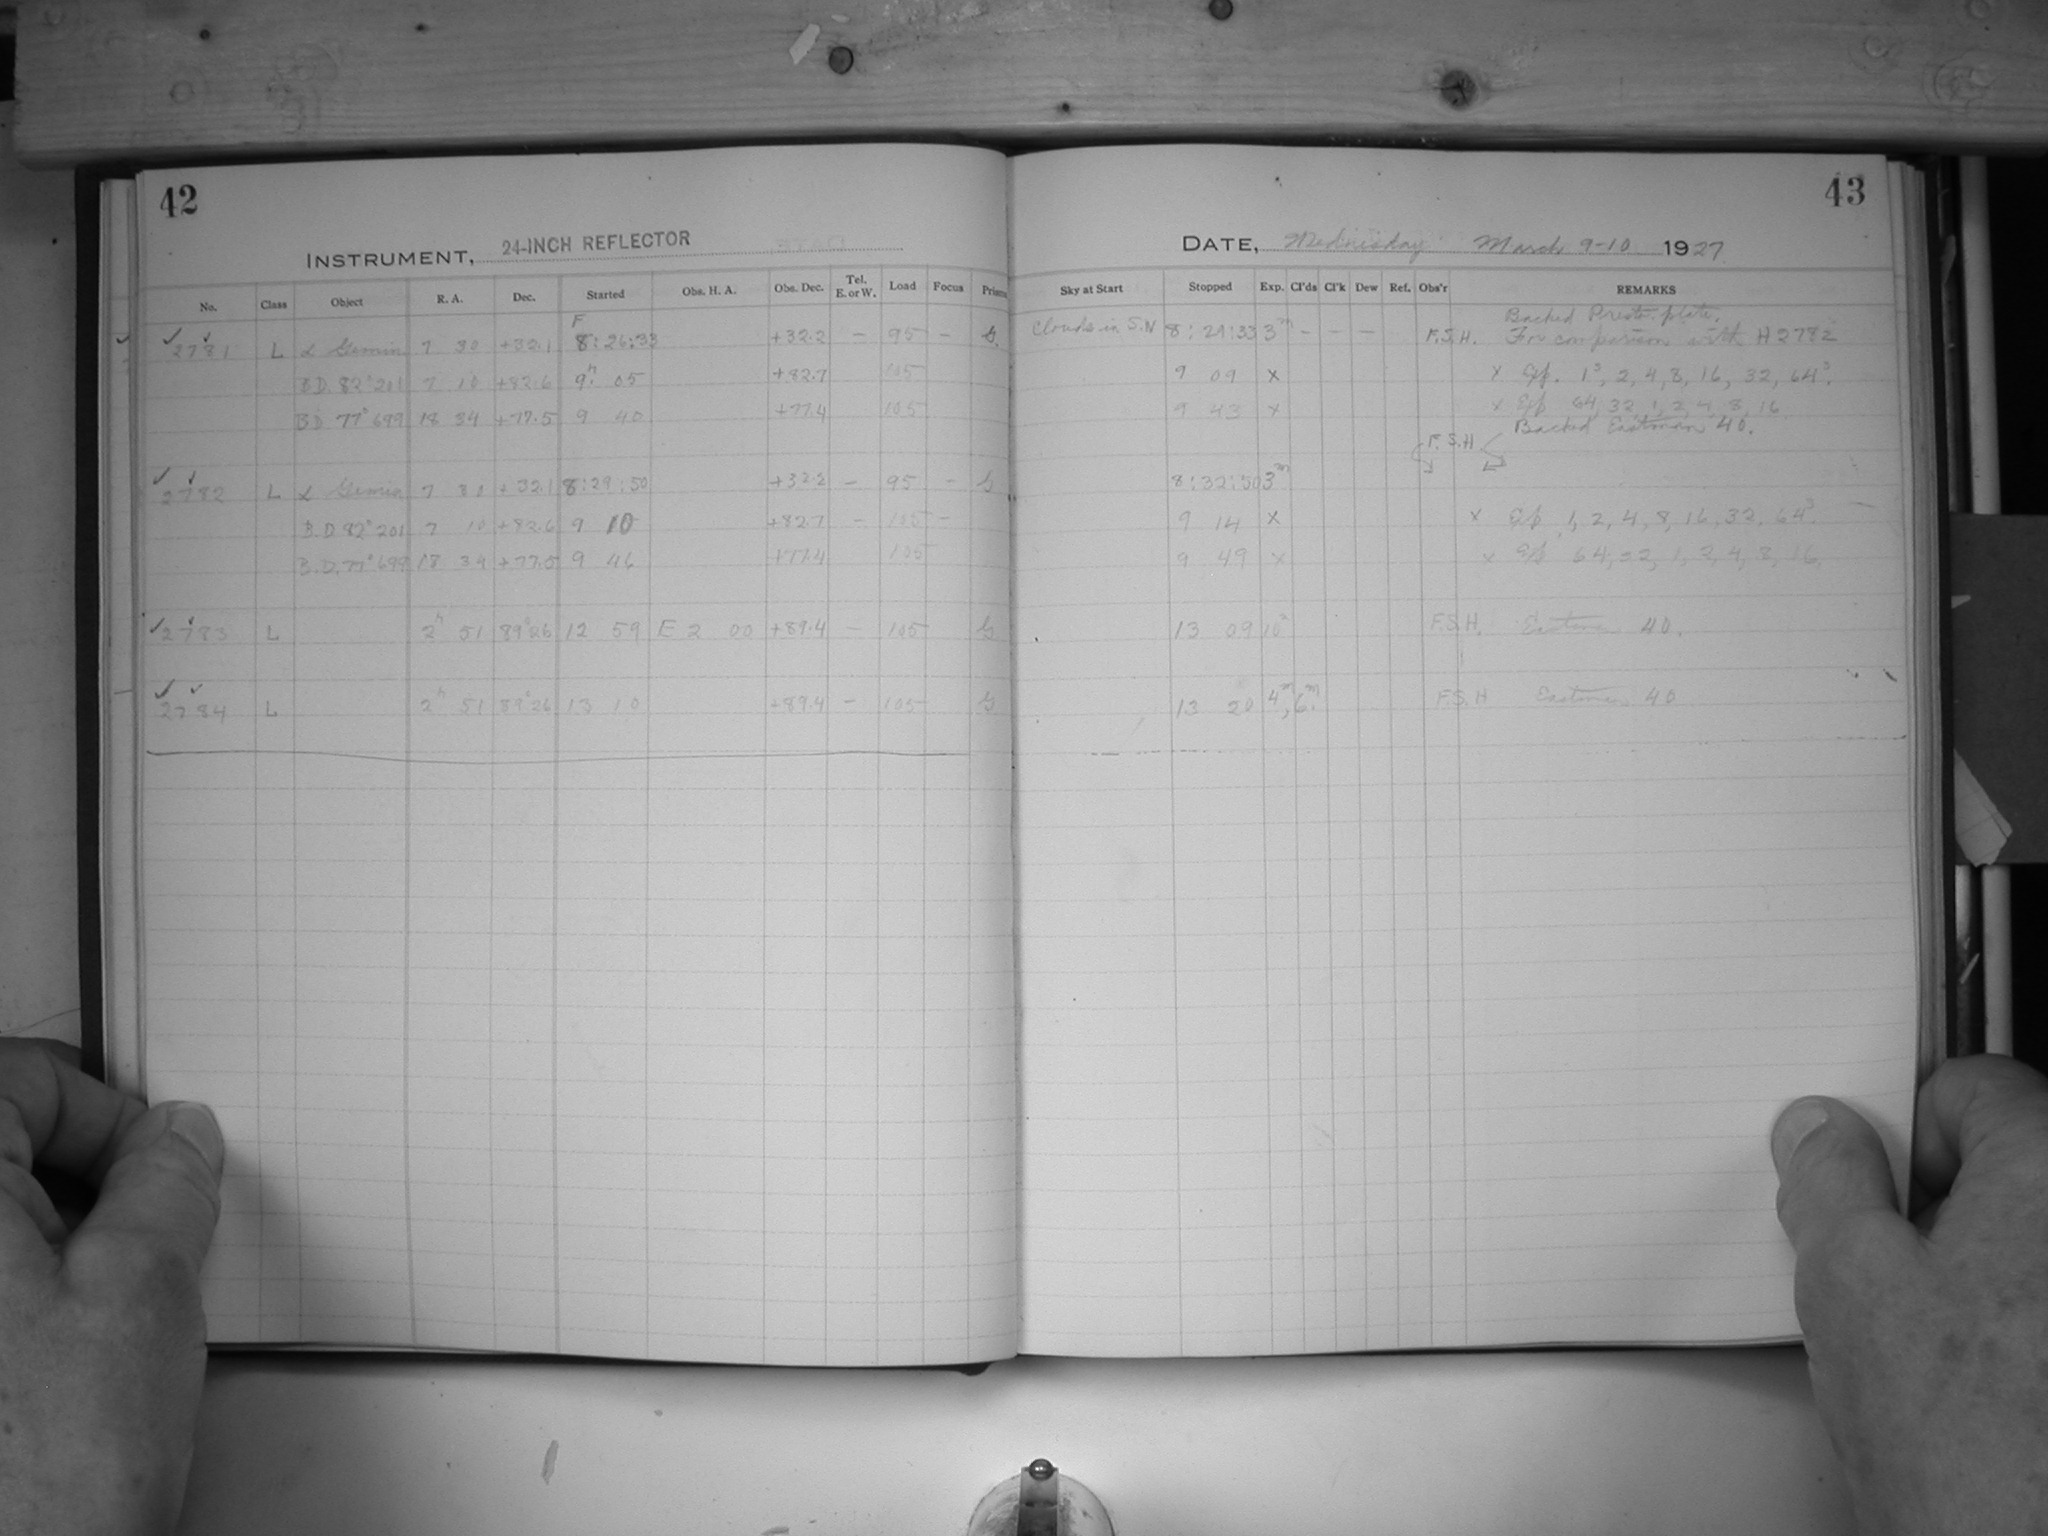 42
INSTRUMENT, 24-INCH REFLECTOR
No. Class Object R. A. Dec. Started Obs. H. A. Obs. Dec. Tel. E. or W. Load Focus Prism
F
2781 L α Gemin 7 30 +32.1 8:26:33 +32.2 – 95 – G.
B.D. 82°201 7 10 +82.6 9h 05 +82.7 105
B.D. 77°699 18 34 +77.5 9 40 +77.4 105
2782 L α Gemin 7 30 +32.1 8:29:50 +32.2 – 95 – G
B.D. 82°201 7 10 +82.6 9 10 +82.7 – 105 –
B.D. 77°699 18 34 +77.5 9 46 +77.4 105
2783 L 2h 51 89°26 12 59 E 2 00 +89.4 – 105 G
2784 L 2h 51 89°26 13 10 +89.4 – 105 G
43
DATE, Wednesday March 9-10 1927
Sky at Start Stopped Exp. Cl'ds Cl'k Dew Ref. Obs'r REMARKS
Backed Presto. plate.
Clouds in S.N 8:29:33 3m – – – F.S.H. For comparison with H 2782
9 09 x x Exp. 1s, 2, 4, 8, 16, 32, 64s.
9 43 x x Exp 64, 32, 1, 2, 4, 8, 16
Backed Eastman 40.
F.S.H
8:32:50 3m
9 14 x x Exp 1, 2, 4, 8, 16, 32, 64s.
9 49 x x Exp 64, 32, 1, 2, 4, 8, 16.
13 09 F.S.H. Eastman 40.
13 20 4m, 6m. F.S.H Eastman 40